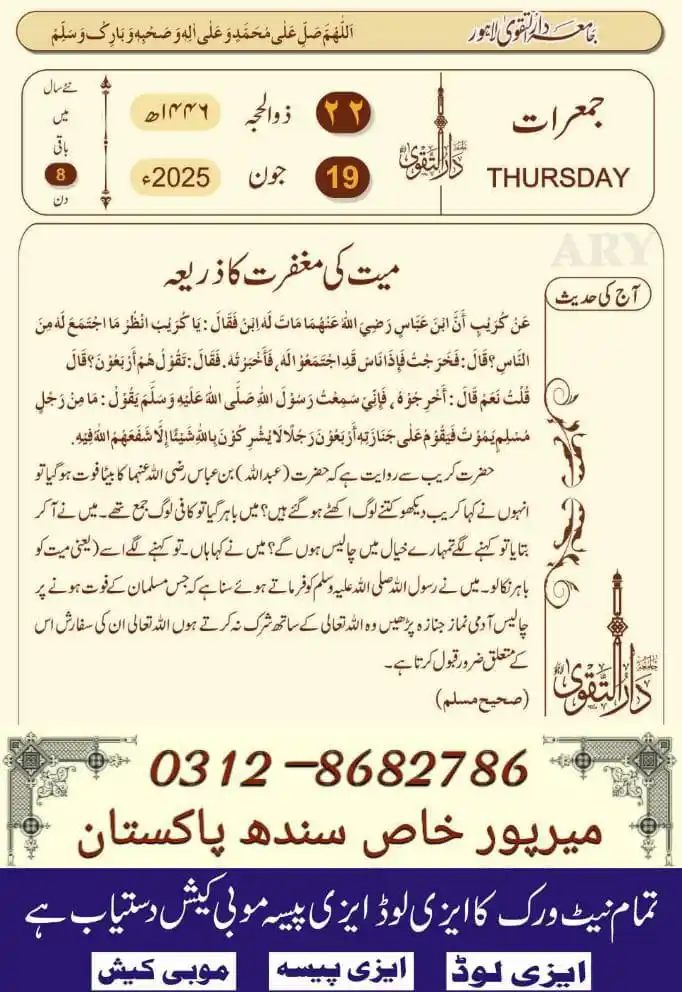 جامعہ دارالتقویٰ لاہور
اَللّٰهُمَّ صَلِّ عَلٰى مُحَمَّدٍ وَّ عَلٰى اٰلِهٖ وَ صَحْبِهٖ وَ بَارِكْ وَ سَلِّمْ
جمعرات
THURSDAY
جامعہ دارالتقویٰ
۲۲ ذوالحجہ ۱۴۴۶ھ
19 جون 2025ء
نئے سال
میں
باقی
8
دن
ARY
آج کی حدیث
میت کی مغفرت کا ذریعہ
عَنْ كُرَيْبٍ أَنَّ ابْنَ عَبَّاسٍ رَضِيَ اللّٰهُ عَنْهُمَا مَاتَ لَهٗ اِبْنٌ فَقَالَ : يَا كُرَيْبُ انْظُرْ مَا اجْتَمَعَ لَهٗ مِنَ
النَّاسِ؟ قَالَ : فَخَرَجْتُ فَإِذَا نَاسٌ قَدِ اجْتَمَعُوْا لَهٗ ، فَأَخْبَرْتُهٗ. فَقَالَ : تَقُوْلُ هُمْ أَرْبَعُوْنَ؟ قَالَ
قُلْتُ نَعَمْ قَالَ : أَخْرِجُوْهُ ، فَإِنِّيْ سَمِعْتُ رَسُوْلَ اللّٰهِ صَلَّى اللّٰهُ عَلَيْهِ وَسَلَّمَ يَقُوْلُ : مَا مِنْ رَجُلٍ
مُسْلِمٍ يَمُوْتُ فَيَقُوْمُ عَلٰى جَنَازَتِهٖ أَرْبَعُوْنَ رَجُلًا لَا يُشْرِكُوْنَ بِاللّٰهِ شَيْئًا إِلَّا شَفَّعَهُمُ اللّٰهُ فِيْهِ.
حضرت کریب سے روایت ہے کہ حضرت (عبداللہ) بن عباس رضی اللہ عنہما کا بیٹا فوت ہو گیا تو
انہوں نے کہا کریب دیکھو کتنے لوگ اکھٹے ہو گئے ہیں؟ میں باہر گیا تو کافی لوگ جمع تھے۔ میں نے آکر
بتایا تو کہنے لگے تمہارے خیال میں چالیس ہوں گے؟ میں نے کہا ہاں۔ تو کہنے لگے اسے (یعنی میت کو
باہر نکالو۔ میں نے رسول اللہ صلی اللہ علیہ وسلم کو فرماتے ہوئے سنا ہے کہ جس مسلمان کے فوت ہونے پر
چالیس آدمی نماز جنازہ پڑھیں وہ اللہ تعالی کے ساتھ شرک نہ کرتے ہوں اللہ تعالی ان کی سفارش اس
کے متعلق ضرور قبول کرتا ہے۔
(صحیح مسلم)
جامعہ دارالتقویٰ
0312-8682786
میرپور خاص سندھ پاکستان
تمام نیٹ ورک کا ایزی لوڈ ایزی پیسہ موبی کیش دستیاب ہے
ایزی لوڈ ایزی پیسه موبی کیش